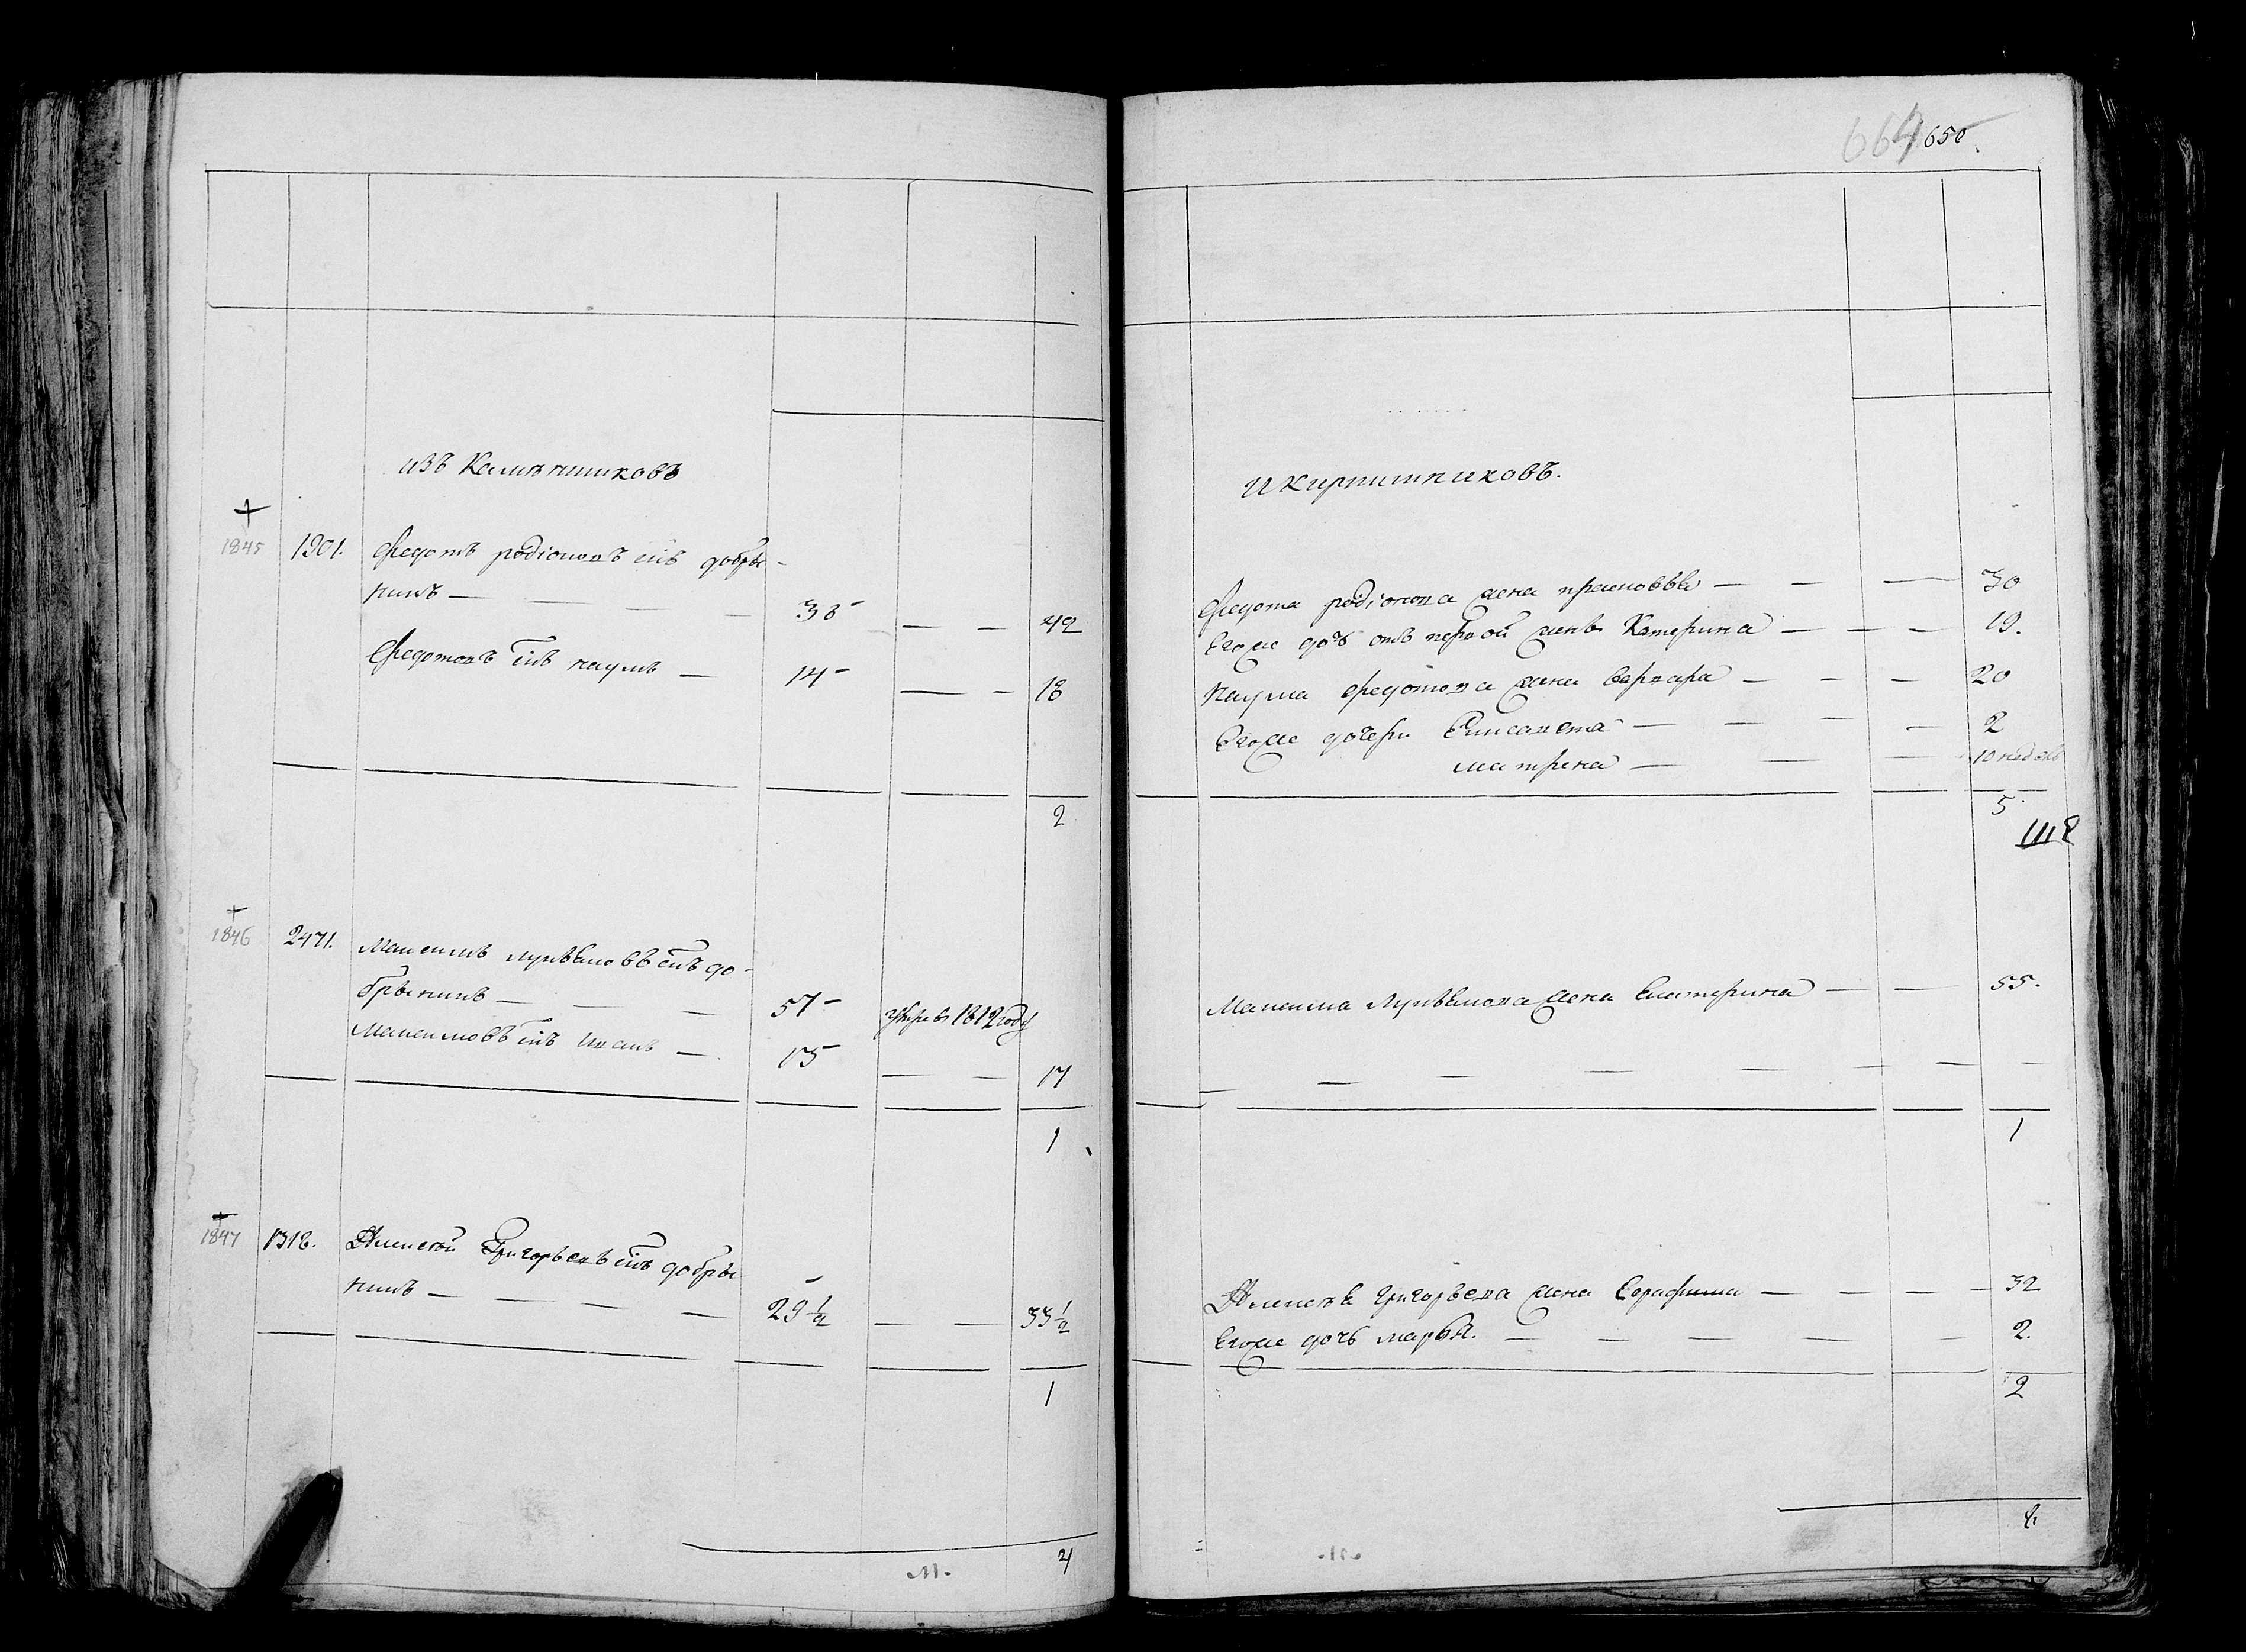 664 650
изъ Каменщиковъ
1845 1901. Федотъ родіоновъ снъ добры-
нинъ — 38 — — 42
Федотовъ снъ наумъ — 14 — — 18
2
1846 2471. Максимъ лукъяновъ снъ до-
брынинъ — 57 умре въ 1812 году
Максимовъ снъ Иванъ — 15 — — 17
1
1847 1318. Алексей Григорьевъ снъ добры
нинъ — 29½ — — 33½
1
4
М.
и кирпишниковъ.
Федота родіонова жена прасковья — — — 30
Егоже дочь отъ первой жены Катерина — — — 19.
Наума федотова жена варвара — — — 20
Егоже дочери Елисавета — — — 2
матрена — — — 10 недель
5
1118
Максима Лукъянова жена Екатерина — — 55.
1
Алексея григорьева жена Серафима — — — 32
Егоже дочь марья. — — — 2.
2
8